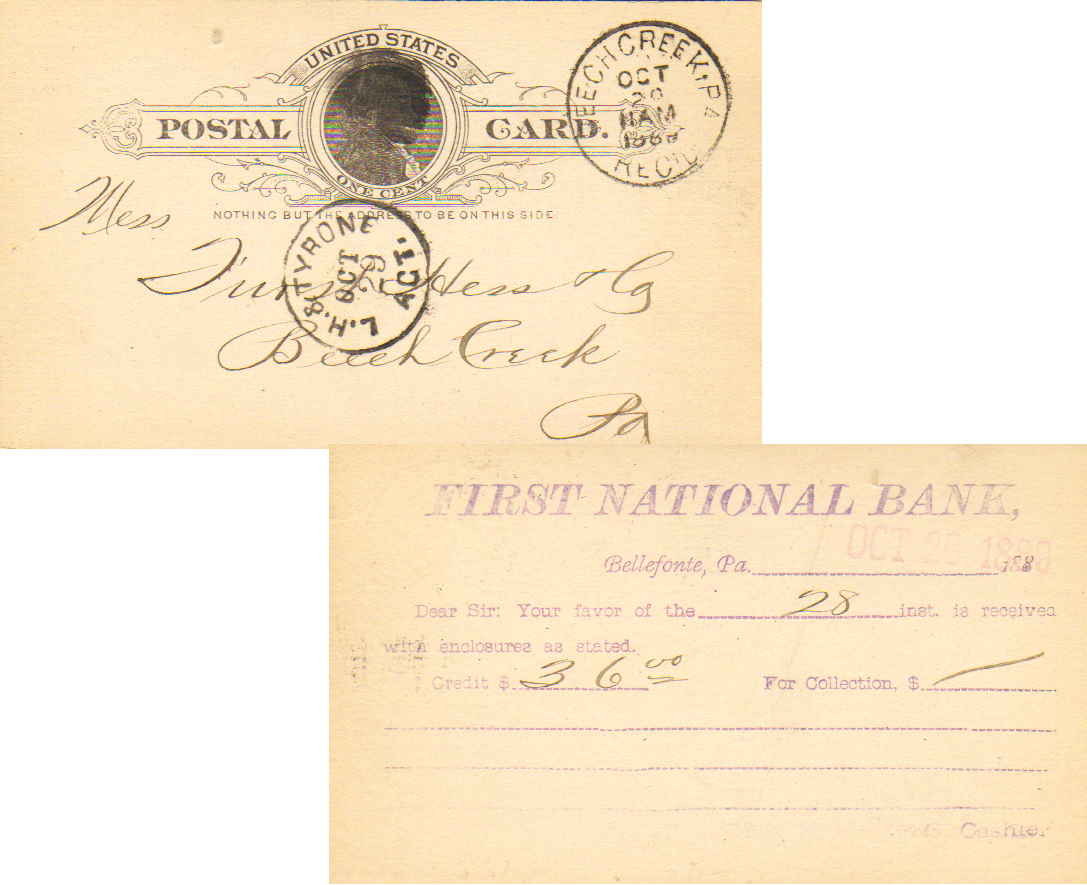 UNITED STATES
POSTAL CARD.
ONE CENT
NOTHING BUT THE ADDRESS TO BE ON THIS SIDE
BEECH CREEK, PA
OCT
11 AM
REC'D
Mess
L.H. & TYRONE
OCT
29
AGT.
Hess & Co
Beech Creek
Pa
FIRST NATIONAL BANK,
OCT 29 188
Bellefonte, Pa. 188
Dear Sir: Your favor of the 28 inst. is received
with enclosures as stated.
Credit $ 36 00 For Collection, $ —
Cashier